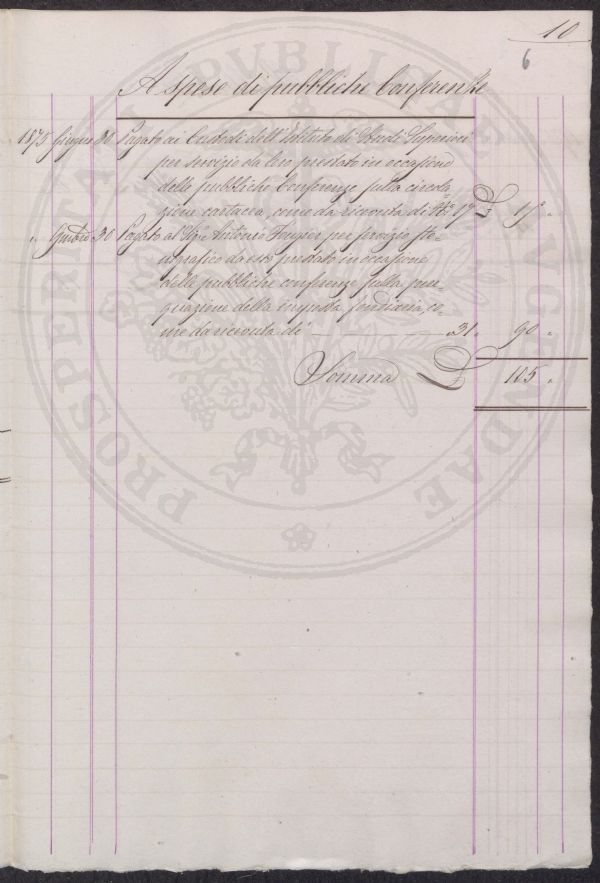 10
6
A spese di pubbliche Conferenze
1875 Giugno 30 Pagato ai Custodi dell'Istituto di Studi Superiori
per servizio da loro prestato in occasione
delle pubbliche Conferenze sulla circola-
zione cartacea, come da ricevuta di No. 17 £ 15 "
" 30 Pagato al Sigr. Antonio per servizio ste-
nografico da esso prestato in occasione
delle pubbliche conferenze sulla pere-
quazione della imposta fondiaria co-
me da ricevuta di " 31 " 90 "
Somma £ 105 "
PROSPERITATI PVBLICAE AVGENDAE